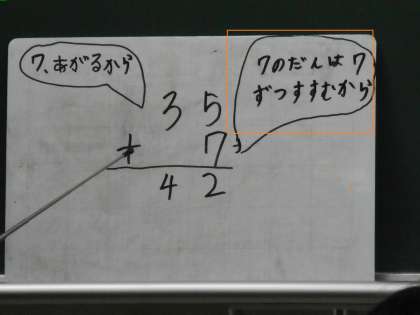 7、あがるから
7のだんは7
ずつすすむから
35
+ 7
42